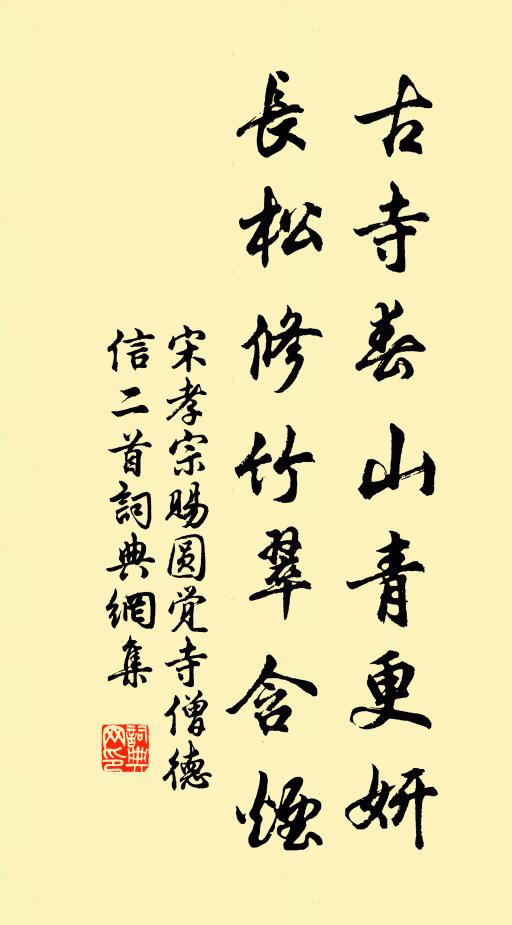 古寺春山青更妍
長松修竹翠含煙
宋孝宗賜圆觉寺僧德
信二首詞典網集
詞典網印